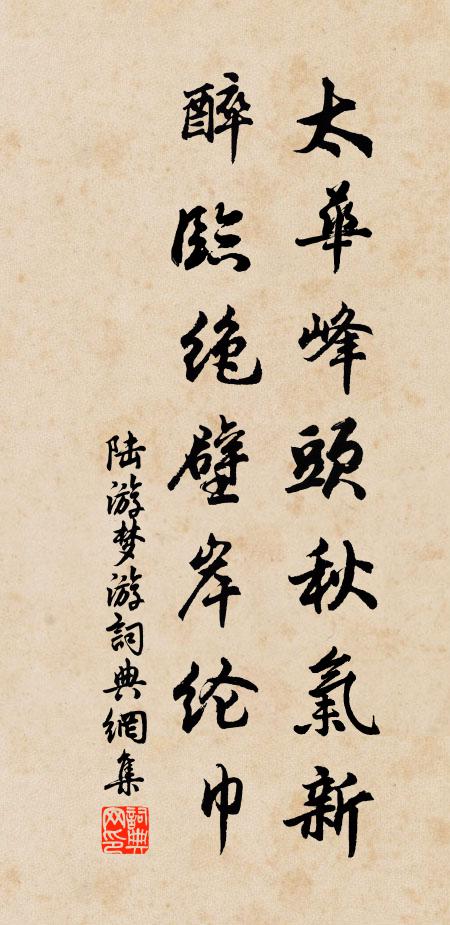 太華峰頭秋氣新
醉臨絶壁岸纶巾
陆游梦游詞典網集
詞典網印